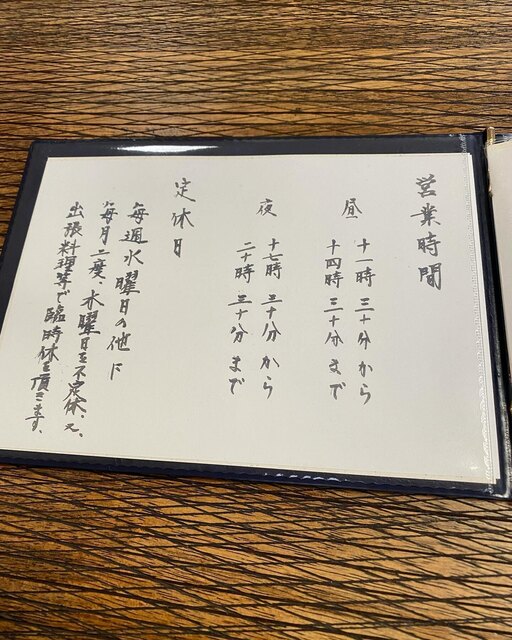 営業時間
昼
十一時 三十分 から
十四時 三十分 まで
夜
十七時 三十分 から
二十時 三十分 まで
定休日
毎週水曜日の他に
毎月二度、木曜日を不定休。又、
出張料理等で臨時休を頂きます。